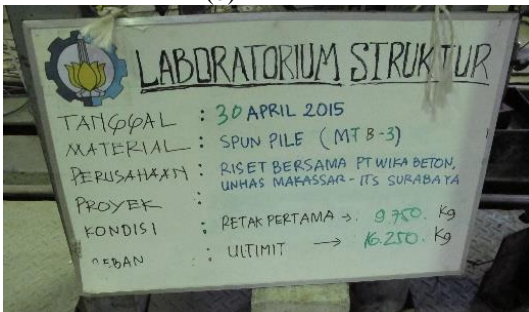 LABORATORIUM STRUKTUR
TANGGAL : 30 APRIL 2015
MATERIAL : SPUN PILE (MTB-3)
PERUSAHAAN : RISET BERSAMA PT WIKA BETON,
UNHAS MAKASSAR - ITS SURABAYA
PROYEK :
KONDISI : RETAK PERTAMA → 9.750. Kg
BEBAN : ULTIMIT → 16.250. Kg